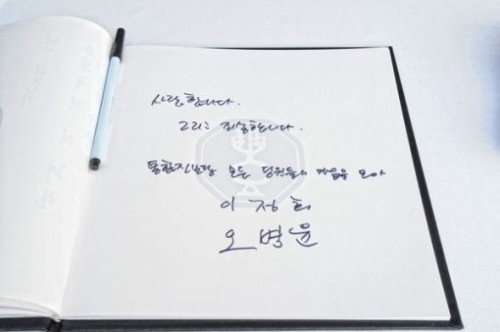 사랑합니다.
그리고 죄송합니다.
통합진보당 모든 당원들의 마음을 모아
이정희
오병윤